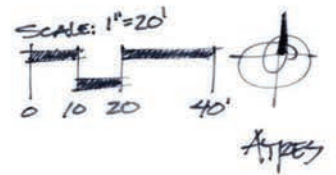 SCALE: 1"=20'
0 10 20 40'
AYRES